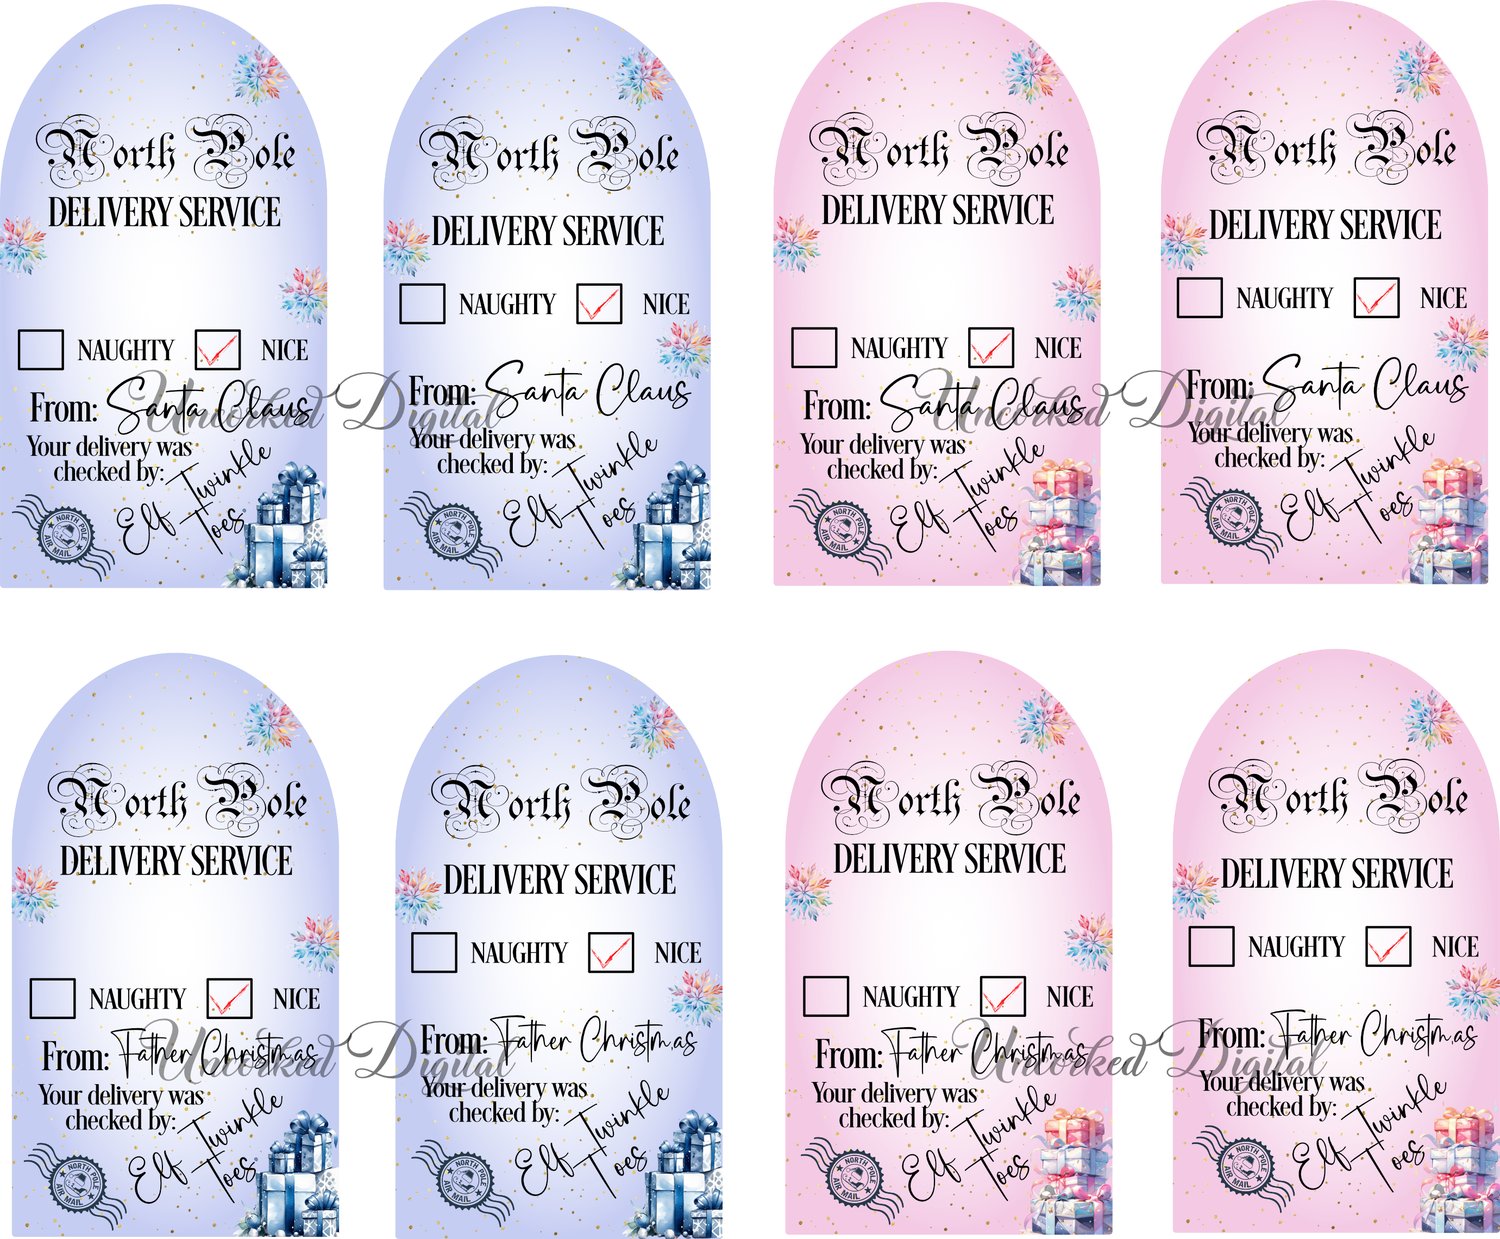 North Pole
DELIVERY SERVICE
NAUGHTY NICE
From: Santa Claus
Your delivery was
checked by: Elf Twinkle
Toes
NORTH POLE
AIR MAIL
North Pole
DELIVERY SERVICE
NAUGHTY NICE
From: Santa Claus
Your delivery was
checked by: Elf Twinkle
Toes
NORTH POLE
AIR MAIL
Uncorked Digital
North Pole
DELIVERY SERVICE
NAUGHTY NICE
From: Santa Claus
Your delivery was
checked by: Elf Twinkle
Toes
NORTH POLE
AIR MAIL
North Pole
DELIVERY SERVICE
NAUGHTY NICE
From: Santa Claus
Your delivery was
checked by: Elf Twinkle
Toes
NORTH POLE
AIR MAIL
Uncorked Digital
North Pole
DELIVERY SERVICE
NAUGHTY NICE
From: Father Christmas
Your delivery was
checked by: Elf Twinkle
Toes
NORTH POLE
AIR MAIL
North Pole
DELIVERY SERVICE
NAUGHTY NICE
From: Father Christmas
Your delivery was
checked by: Elf Twinkle
Toes
NORTH POLE
AIR MAIL
Uncorked Digital
North Pole
DELIVERY SERVICE
NAUGHTY NICE
From: Father Christmas
Your delivery was
checked by: Elf Twinkle
Toes
NORTH POLE
AIR MAIL
North Pole
DELIVERY SERVICE
NAUGHTY NICE
From: Father Christmas
Your delivery was
checked by: Elf Twinkle
Toes
NORTH POLE
AIR MAIL
Uncorked Digital